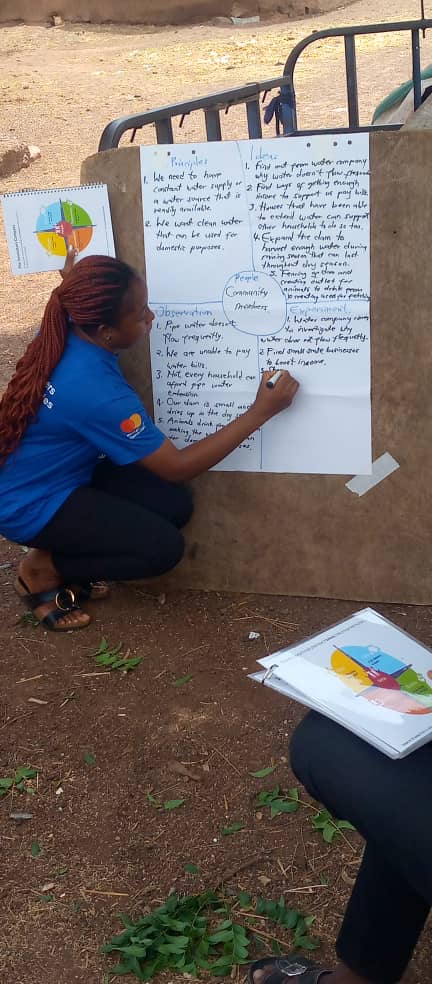 Principles
1. We need to have
constant water supply or
a water source that is
readily available.
2. We want clean water
that can be used for
domestic purposes.
Ideas
1. Find out from water company
why water doesn't flow
2. Find ways of getting enough
income to support us pay bills.
3. Houses that have been able
to extend water can support
other households to do so too.
4. Expand the dam to
harvest enough water during
raining season that can last
throughout dry season.
5. Fencing of dam and
creating outlet for
animals to drink from
People
Community
members.
Observation
1. Pipe water doesn't
flow frequently.
2. We are unable to pay
water bills.
3. Not every household can
afford pipe water
extension.
4. Our dam is small and
dries up in the dry
5. Animals drink
making the
for
Experiment
1. Water company
to investigate why
water does not flow frequently.
2. Find small scale businesses
to boost income.
3.